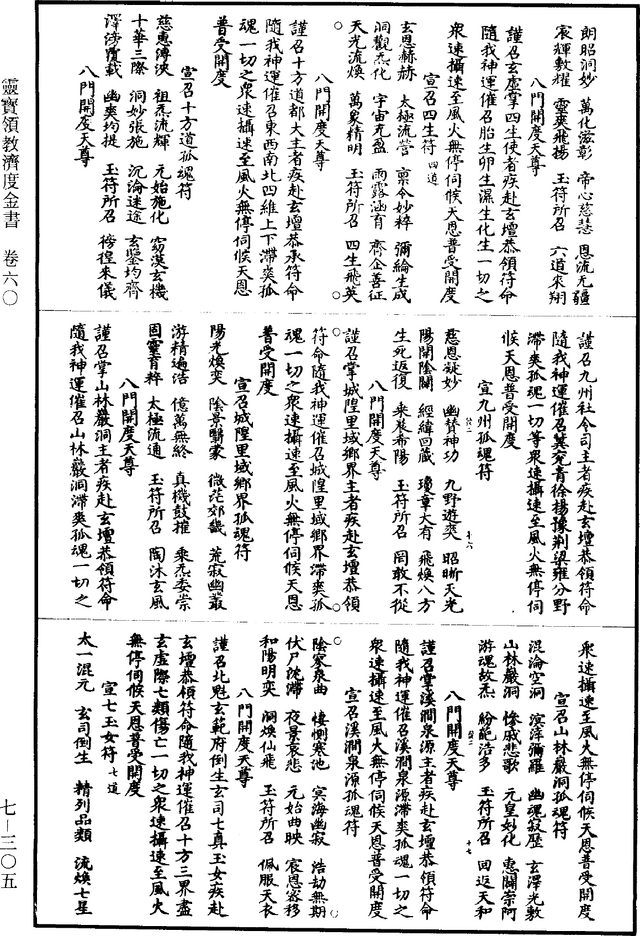 朗昭洞妙 萬化滋彰 帝心慈悲 恩流无疆
宸輝敷耀 靈爽飛揚 玉符所召 六道來翔
八門開度天尊
謹召玄虛掌四生使者疾赴玄壇恭領符命
隨我神運催召胎生卵生濕生化生一切之
衆速速攝速至風火無停伺候天恩普受開度
宣召四生符 四道
玄恩赫赫 太極流營 稟令妙粹 彌綸生成
洞觀炁化 宇宙充盈 雨露涵育 齊企善征
天光流煥 萬彙精明 玉符所召 四生飛英
八門開度天尊
謹召十方道都大主者疾赴玄壇恭承符命
隨我神運催召東西南北四維上下滯爽孤
魂一切之衆速速攝速至風火無停伺候天恩
普受開度
宣召十方道孤魂符
慈惠溥浹 祖炁流輝 元始施化 窈漠玄機
十華三際 洞妙張施 沉淪迷途 玄鑒均齊
澤涉覆載 幽爽均提 玉符所召 徬徨來儀
八門開度天尊
謹召九州社令司主者疾赴玄壇恭領符命
隨我神運催召冀兗青徐揚豫荆梁雍分野
滯爽孤魂一切等衆速攝速至風火無停伺
候天恩普受開度
宣九州孤魂符
慈恩凝妙 幽贊神功 九野遊爽 昭晰天光
陽開陰闔 經緯回藏 瓊章大有 飛煥八方
生死返復 來展希陽 玉符所召 罔敢不從
八門開度天尊
謹召掌城隍里域鄉界主者疾赴玄壇恭領
符命隨我神運催召城隍里域鄉界滯爽孤
魂一切之衆速攝速至風火無停伺候天恩
普受開度
宣召城隍里域鄉界孤魂符
陽光煥奕 陰景翳蒙 微茫郊畿 荒寂幽叢
游精遍浩 億萬無終 真機鼓摧 乘炁委崇
固靈育粹 太極流通 玉符所召 陶沐玄風
八門開度天尊
謹召掌山林巖洞主者疾赴玄壇恭領符命
隨我神運催召山林巖洞滯爽孤魂一切之
衆速攝速至風火無停伺候天恩普受開度
宣召山林巖洞孤魂符
混淪空洞 溟涬彌羅 幽魂寂歷 玄澤光敷
山林巖洞 慘戚悲歌 元皇妙化 惠闢崇阿
游魂故炁 紛葩浩多 玉符所召 回返天和
八門開度天尊
謹召掌溪澗泉源主者疾赴玄壇恭領符命
隨我神運催召溪澗泉源滯爽孤魂一切之
衆速攝速至風火無停伺候天恩普受開度
宣召溪澗泉源孤魂符
陰寥泉曲 悽惻寒池 冥海幽寂 浩劫無期
伏尸沈滯 夜景哀悲 元始曲映 宸恩密移
和陽明奕 洞煥仙飛 玉符所召 佩服天衣
八門開度天尊
謹召北魁玄範府倒生玄司七真玉女疾赴
玄壇恭領符命隨我神運催召十方三界盡
玄虛際七類傷亡一切之衆速攝速至風火
無停伺候天恩普受開度
宣七玉女符 七道
太一混元 玄司倒生 精列品類 流煥七星
靈寶領教濟度金書 卷六〇
七—三〇五